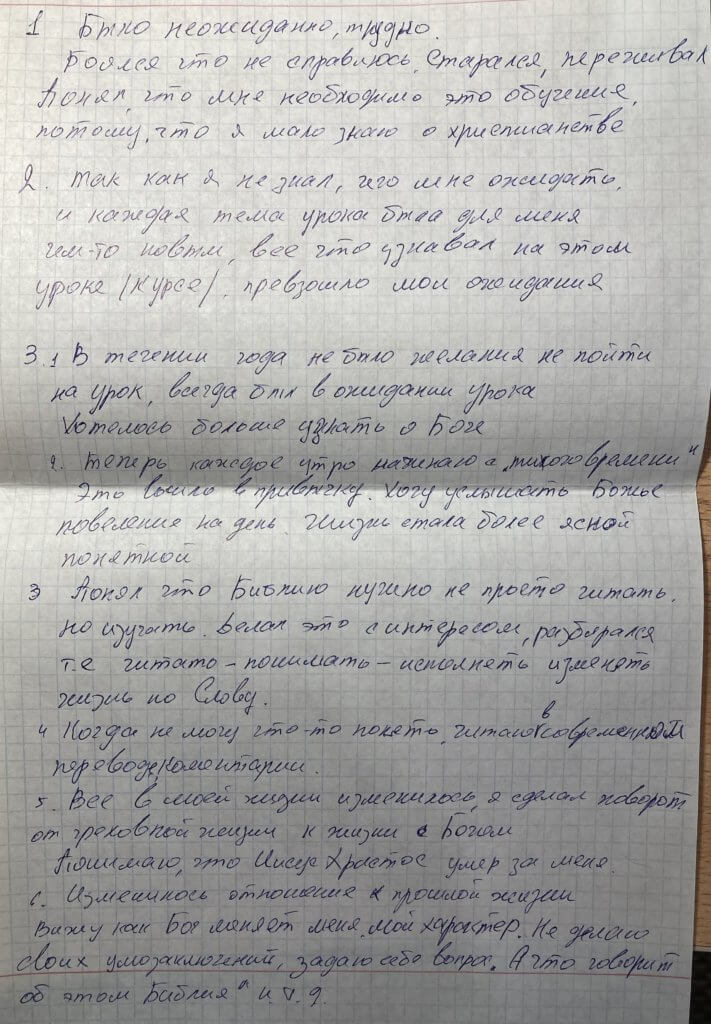 1 Было неожиданно, трудно.
Боялся что не справлюсь, старался, переживал
Понял, что мне необходимо это обучение,
потому, что я мало знаю о христианстве
2. Так как я не знал, чего мне ожидать,
и каждая тема урока была для меня
чем-то новым, все что узнавал на этом
уроке /курсе/, превзошло мои ожидания
3. 1 В течении года не было желания не пойти
на урок, всегда был в ожидании урока
Хотелось больше узнать о Боге
2. Теперь каждое утро начинаю с „тихого времени"
Это вошло в привычку. Хочу услышать Божье
повеление на день. Жизнь стала более ясной
понятной
3 Понял что Библию нужно не просто читать,
но изучать. Делал это с интересом, разбирался
т.е читать – понимать – исполнять изменять
жизнь по Слову.
4 Когда не могу что-то понять, читаю в современном
переводе, коментарии.
5. Все в моей жизни изменилось, я сделал поворот
от греховной жизни к жизни с Богом
Понимаю, что Иисус Христос умер за меня.
6. Изменилось отношение к прошлой жизни
Вижу как Бог меняет меня, мой характер. Не делаю
своих умозаключений, задаю себе вопрос. А что говорит
об этом Библия" и. т. д.